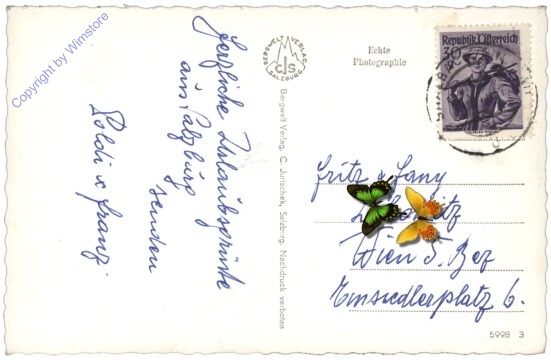 Copyright by Wimstore
Herzliche Urlaubsgrüße
aus Salzburg
senden
Poldi u Franz
BERGWELT VERLAG
CJS
SALZBURG
Bergwelt Verlag, C. Jurischek, Salzburg. Nachdruck verboten
Echte
Photographie
Republik Österreich
Fritz u Fany
Wien 5. Bez
Einsiedlerplatz 6.
5998 3